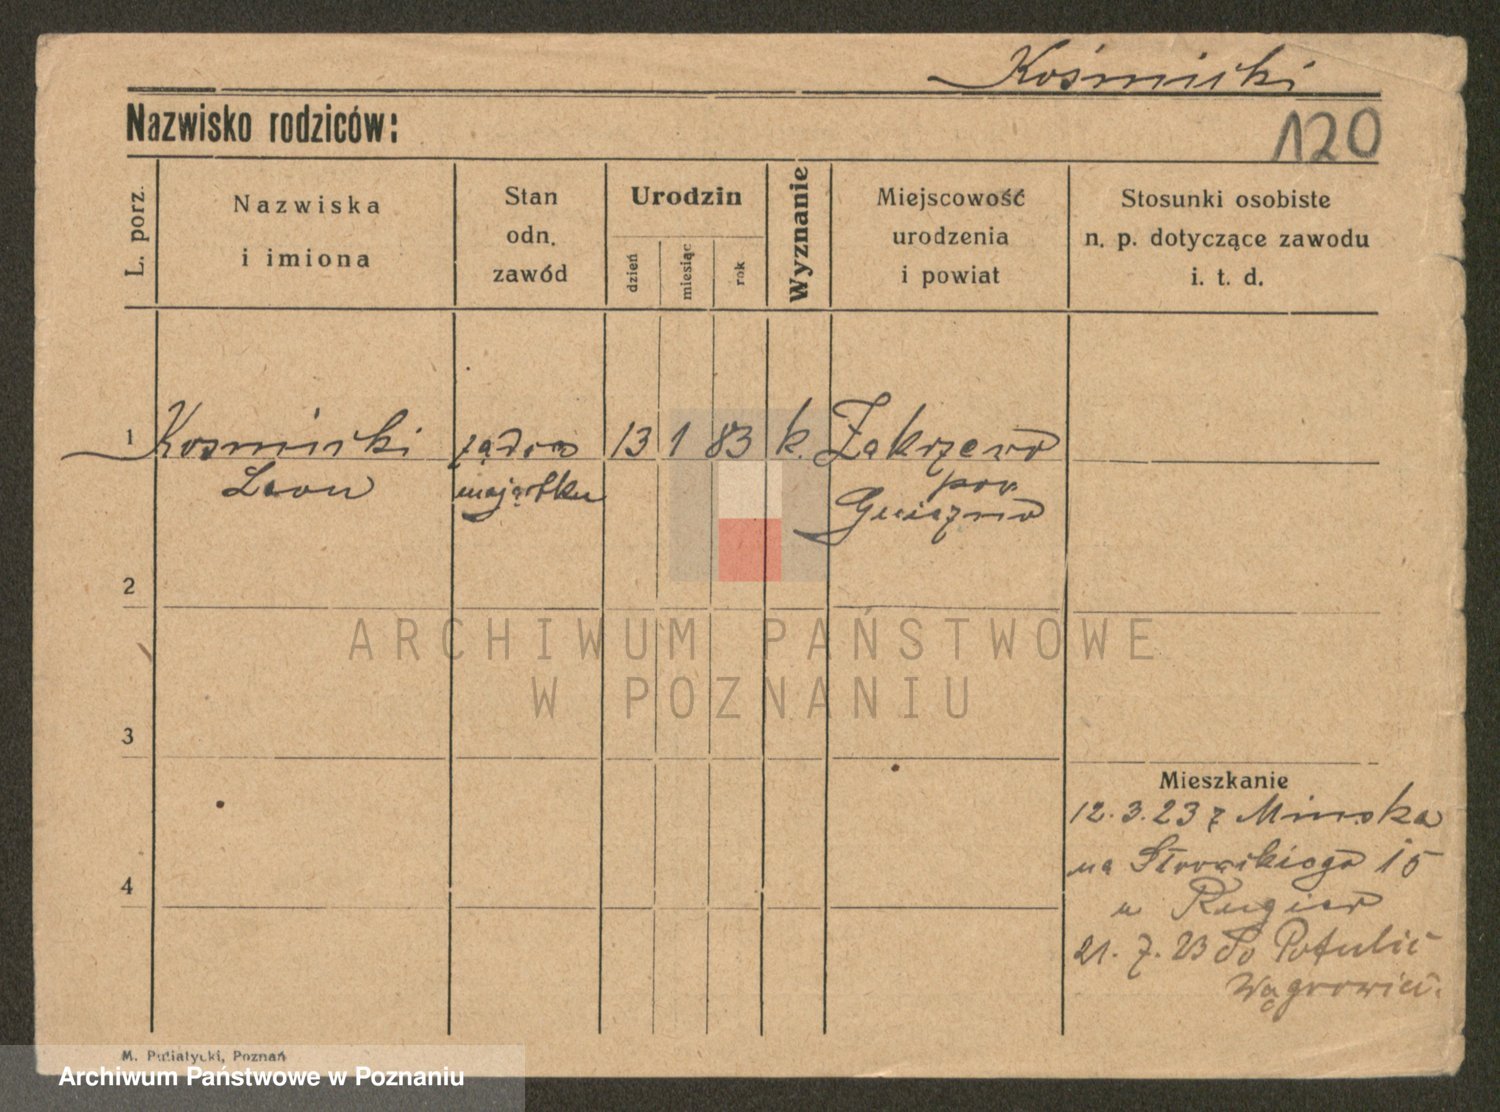 Kośmicki
Nazwisko rodziców:
120
L. porz.
Nazwiska
i imiona
Stan
odn.
zawód
Urodzin
dzień
miesiąc
rok
Wyznanie
Miejscowość
urodzenia
i powiat
Stosunki osobiste
n. p. dotyczące zawodu
i. t. d.
1 Kosmicki rządca 13 1 83 k. Zakrzewo
Leon majątku pow
Gniezno
2
ARCHIWUM PAŃSTWOWE
W POZNANIU
3
Mieszkanie
12.3.23 z Minska
na Słowackiego 15
u Rugier
4
21.7.23 do Potulic
Wągrowiec.
M. Putiatycki, Poznań
Archiwum Państwowe w Poznaniu